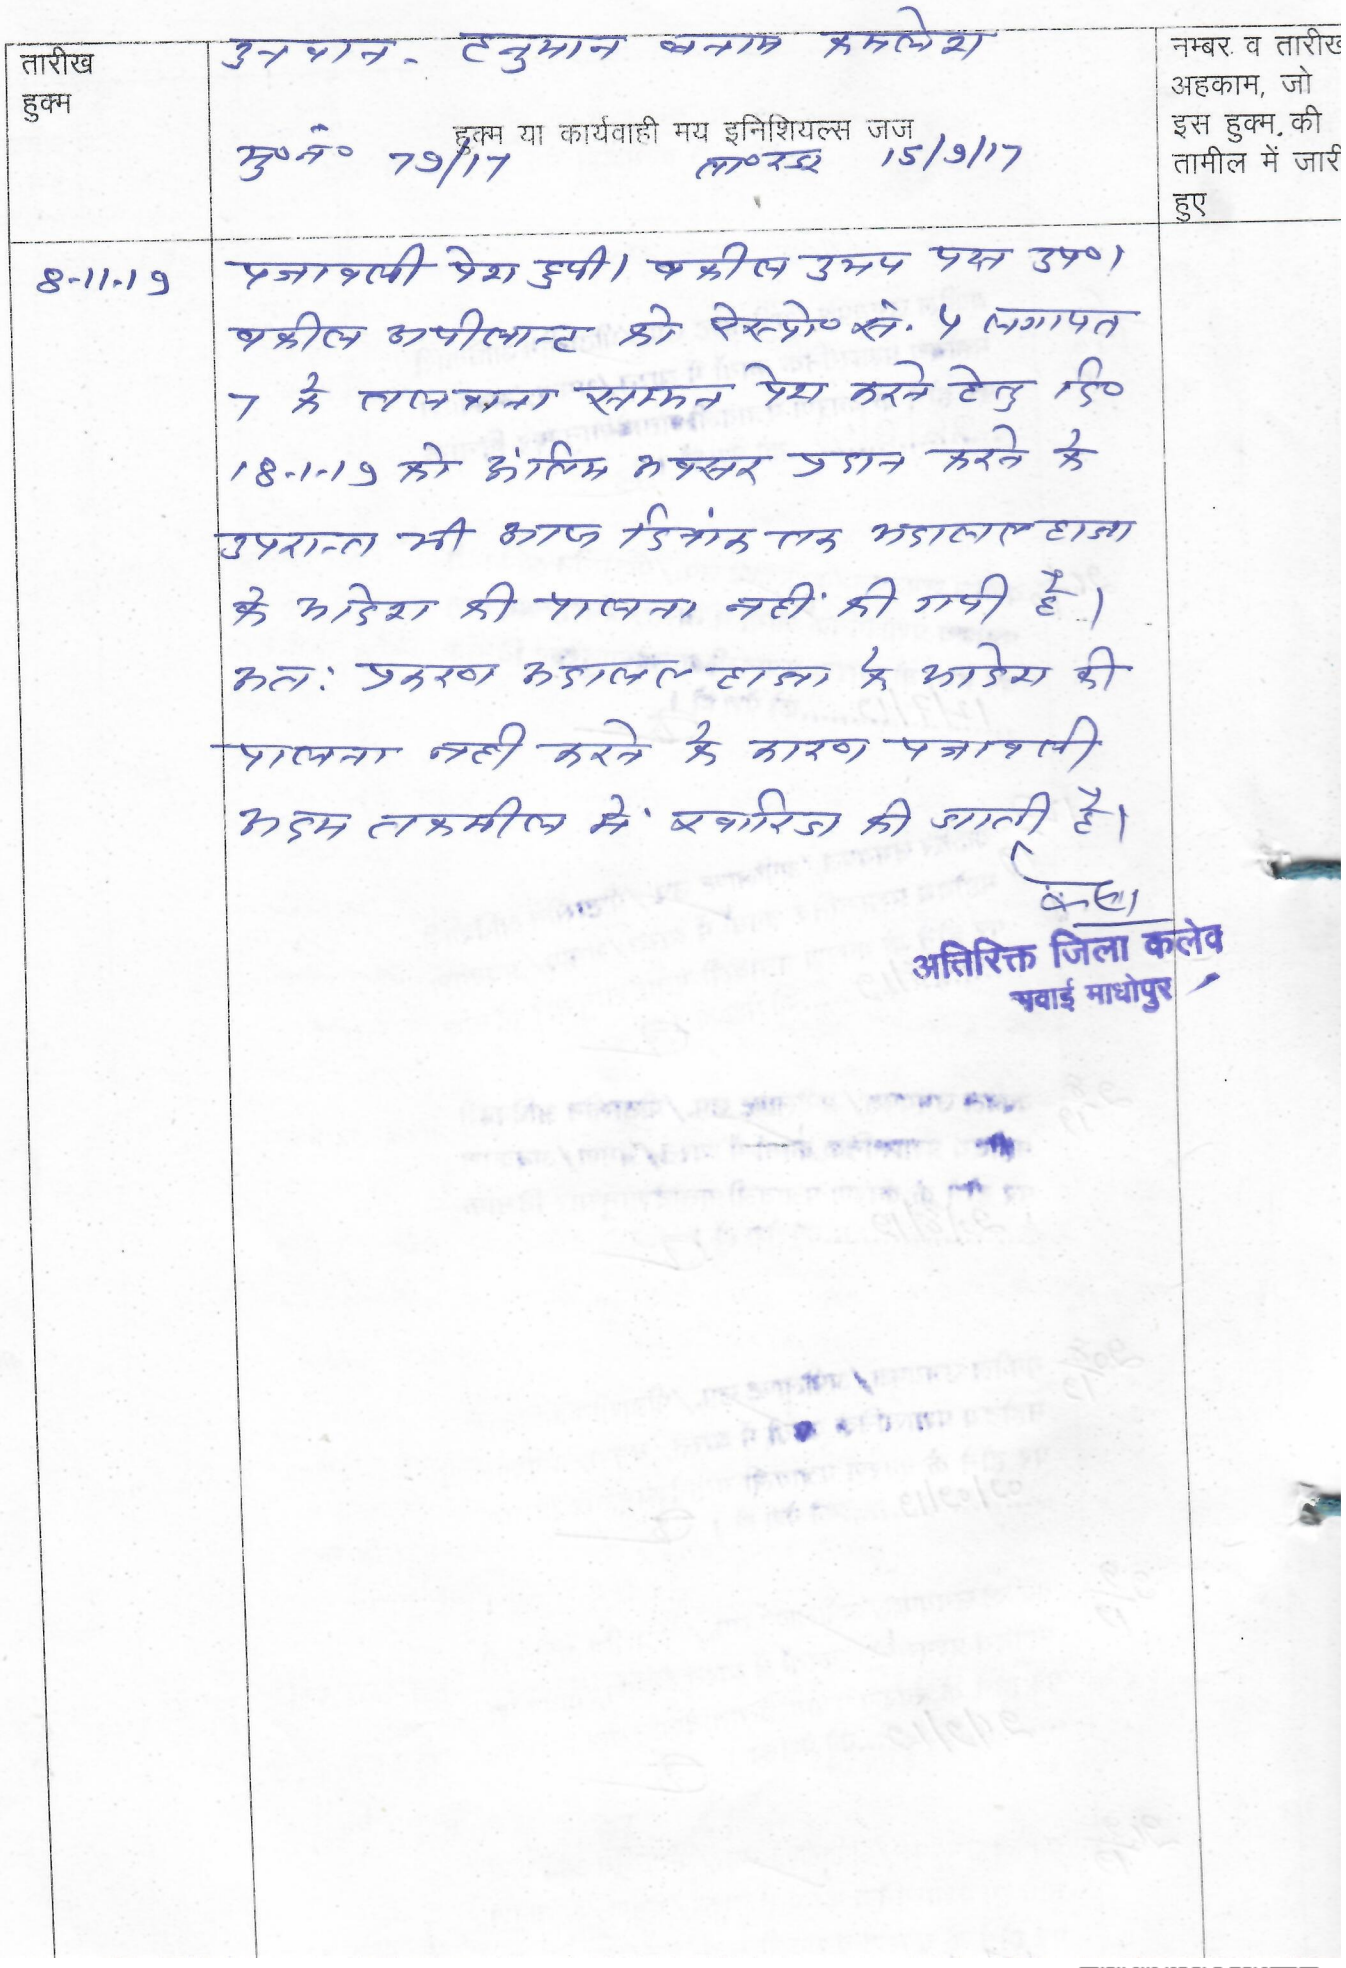 तारीख
हुक्म
उनवान - हनुमान बनाम कमलेश
हुक्म या कार्यवाही मय इनिशियल्स जज
मु०नं० 79/17 ता०रजू 15/9/17
नम्बर व तारीख
अहकाम, जो
इस हुक्म की
तामील में जारी
हुए
8-11-19
पत्रावली पेश हुयी। वकील उभय पक्ष उप०।
वकील अपीलान्ट को रेस्पो० सं. 5 लगायत
7 के तलवाना सम्मन पेश करने हेतु दि०
18-1-19 को अंतिम अवसर प्रदान करने के
उपरान्त भी आज दिनांक तक अदालत हाजा
के आदेश की पालना नहीं की गयी है।
अतः प्रकरण अदालत हाजा के आदेश की
पालना नही करने के कारण पत्रावली
अदम तकमील में खारिज की जाती है।
अतिरिक्त जिला कलेक
सवाई माधोपुर